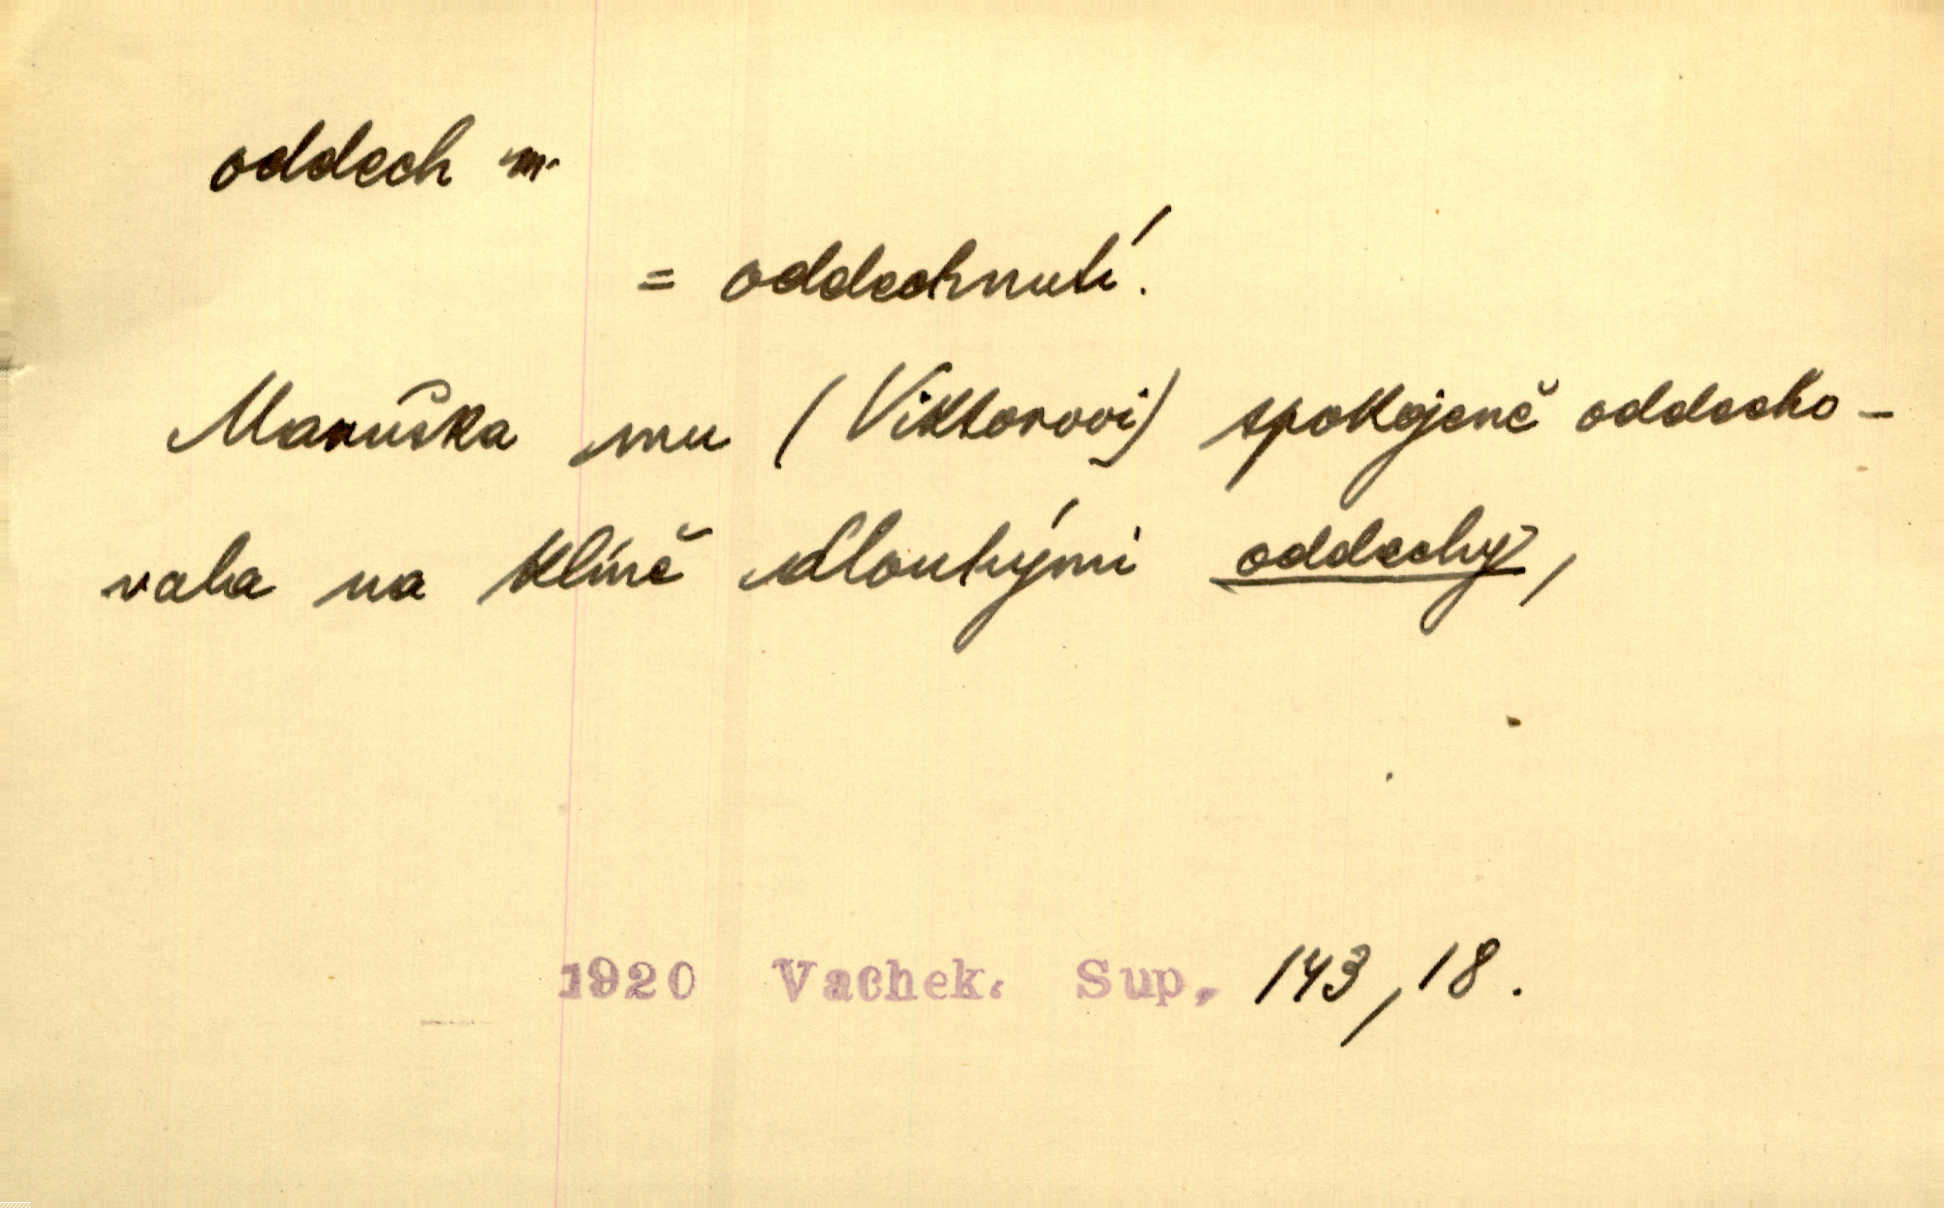 oddech m.
= oddechnutí.
Maruška mu (Viktorovi) spokojeně oddecho-
vala na klíně dlouhými oddechy,
1920 Vachek. Sup. 143, 18.